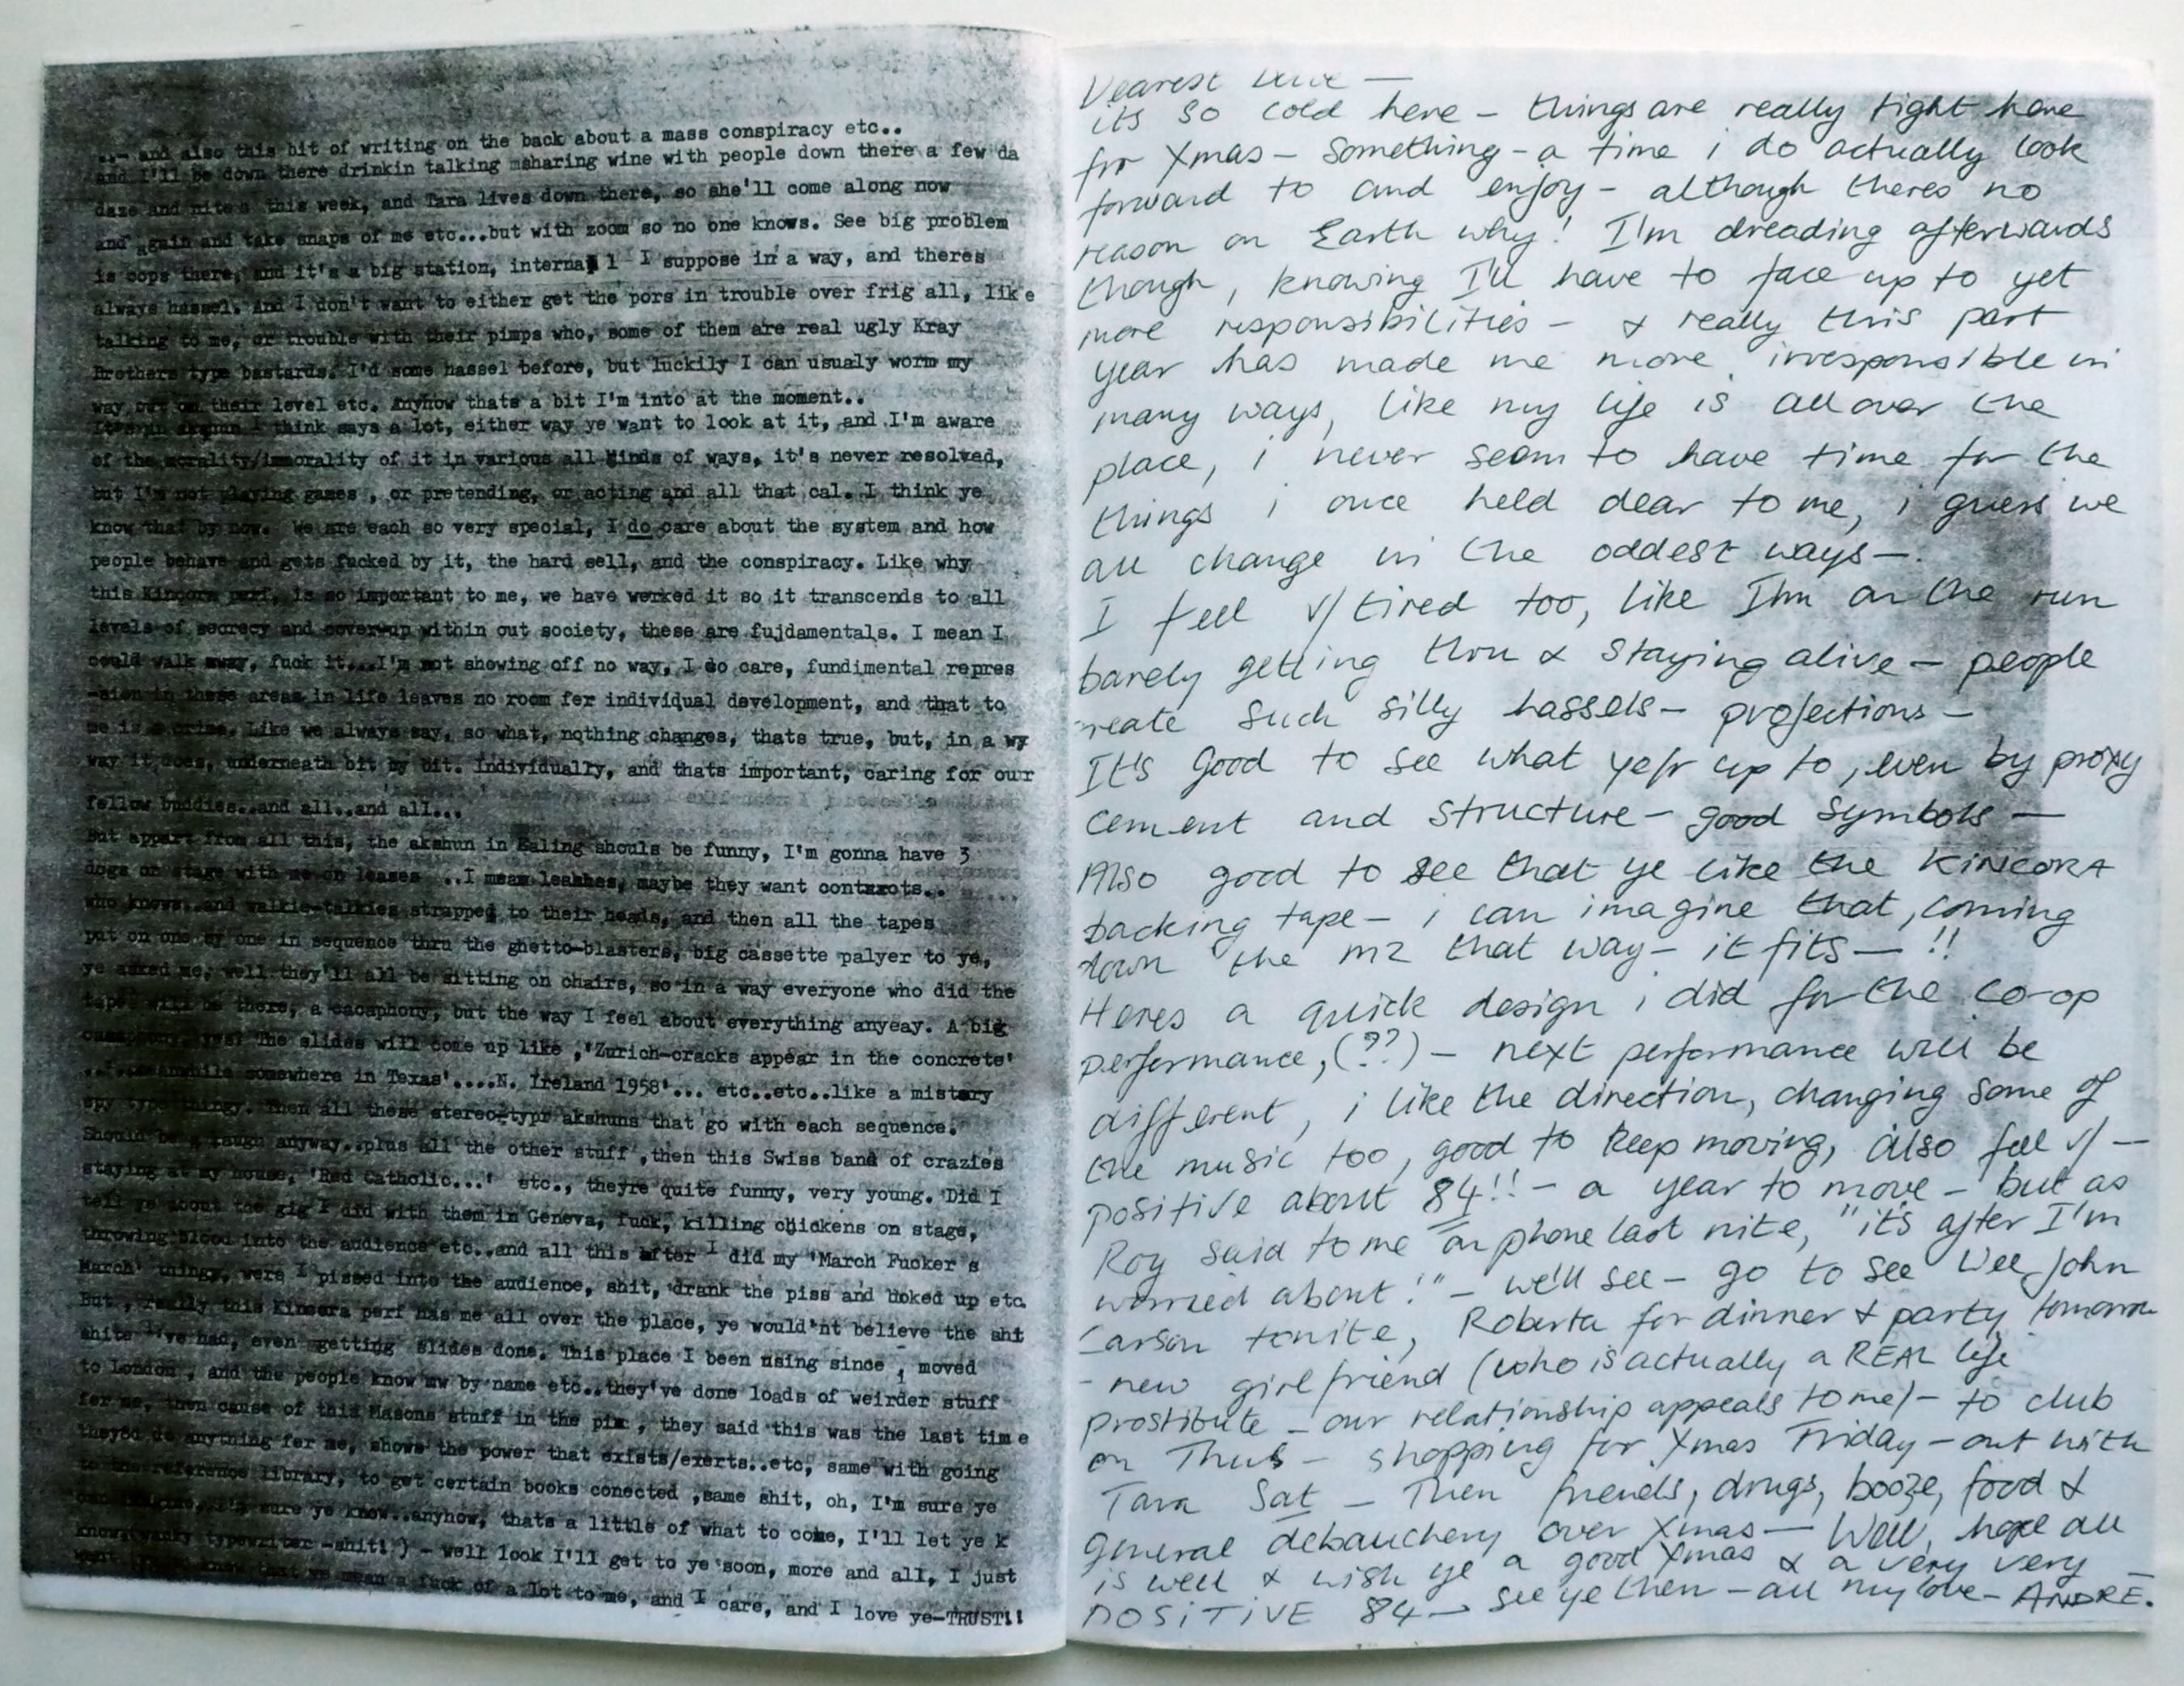 ..- and also this bit of writing on the back about a mass conspiracy etc..
and I'll be down there drinkin talking msharing wine with people down there a few da
daze and nites this week, and Tara lives down there, so she'll come along now
and again and take snaps of me etc...but with zoom so no one knows. See big problem
is cops there, and it's a big station, internal I suppose in a way, and theres
always hassel, and I don't want to either get the pors in trouble over frig all, like
talking to me, or trouble with their pimps who, some of them are real ugly Kray
Brothers type bastards. I'd some hassel before, but luckily I can usualy worm my
way out on their level etc. Anyhow thats a bit I'm into at the moment..
It's an akshun I think says a lot, either way ye want to look at it, and I'm aware
of the morality/immorality of it in various all kinds of ways, it's never resolved,
but I'm not playing games , or pretending, or acting and all that cal. I think ye
know that by now. We are each so very special, I do care about the system and how
people behave and gets fucked by it, the hard sell, and the conspiracy. Like why
this Kincora perf, is so important to me, we have worked it so it transcends to all
levels of secrecy and coverwup within out society, these are fujdamentals. I mean I
could walk away, fuck it...I'm not showing off no way, I do care, fundimental repres
-sion in these areas in life leaves no room fer individual development, and that to
me is a crime. Like we always say, so what, nothing changes, thats true, but, in a wy
way it does, underneath bit by bit. Individually, and thats important, caring for our
fellow buddies..and all..and all...
But appart from all this, the akshun in Ealing shouls be funny, I'm gonna have 3
dogs on stage with me on leases ..I mean leashes, maybe they want contxrots..
who knows..and walkie-talkies strapped to their heads, and then all the tapes
put on one by one in sequence thru the ghetto-blasters, big cassette palyer to ye,
ye asked me, well they'll all be sitting on chairs, so in a way everyone who did the
tapes will be there, a cacaphony, but the way I feel about everything anyeay. A big
cacaphony, yes! The slides will come up like ,'Zurich-cracks appear in the concrete'
..'..meanwhile somewhere in Texas'....N. Ireland 1958'... etc..etc..like a mistery
spy type thingy. Then all these stereotypr akshuns that go with each sequence.
Should be a laugh anyway..plus all the other stuff ,then this Swiss band of crazies
staying at my house, 'Red Catholic...' etc., theyre quite funny, very young. Did I
tell ye about the gig I did with them in Geneva, fuck, killing chickens on stage,
throwing blood into the audience etc..and all this after I did my 'March Fucker s
March' thingy, were I pissed into the audience, shit, drank the piss and hoked up etc.
But , really this Kincora perf has me all over the place, ye would'nt believe the sht
shite I've had, even getting slides done. This place I been using since , moved
to London , and the people know mw by name etc..they've done loads of weirder stuff
fer me, then cause of this Masons stuff in the pix , they said this was the last time
they8d do anything fer me, shows the power that exists/exerts..etc, same with going
to the reference library, to get certain books conected ,same shit, oh, I'm sure ye
can imagine..I'm sure ye know..anyhow, thats a little of what to come, I'll let ye k
know(wanky typewriter -shit!) - well look I'll get to ye soon, more and all, I just
want ye to know that ye mean a fuck of a lot to me, and I care, and I love ye-TRUST!!
Dearest —
its so cold here – things are really tight here
for Xmas – something – a time i do actually look
forward to and enjoy – although theres no
reason on Earth why! I'm dreading afterwards
though, knowing I'll have to face up to yet
more responsibilities – & really this part
year has made me more irresponsible in
many ways, like my life is all over the
place, i never seem to have time for the
things i once held dear to me, i guess we
all change in the oddest ways—.
I feel v/ tired too, like I'm on the run
barely getting thru & staying alive – people
create such silly hassels – projections –
It's good to see what ye/r up to, even by proxy
cement and structure – good symbols —
Also good to see that ye like the KINCORA
backing tape – i can imagine that, coming
down the m2 that way – it fits — !!
Heres a quick design i did for the co-op
performance, (??) – next performance will be
different, i like the direction, changing some of
the music too, good to keep moving, also feel v/ —
positive about 84!! – a year to move – but as
Roy said to me on phone last nite, "it's after I'm
worried about!" – we'll see – go to see Wee John
Carson tonite, Roberta for dinner & party tomorrow
– new girlfriend (who is actually a REAL life
prostitute – our relationship appeals to me) – to club
on Thurs – shopping for Xmas Friday – out with
Tara Sat – Then friends, drugs, booze, food &
general debauchery over Xmas — Well, hope all
is well & wish ye a good Xmas & a very very —
POSITIVE 84 → see ye then – all my love – ANDRE.